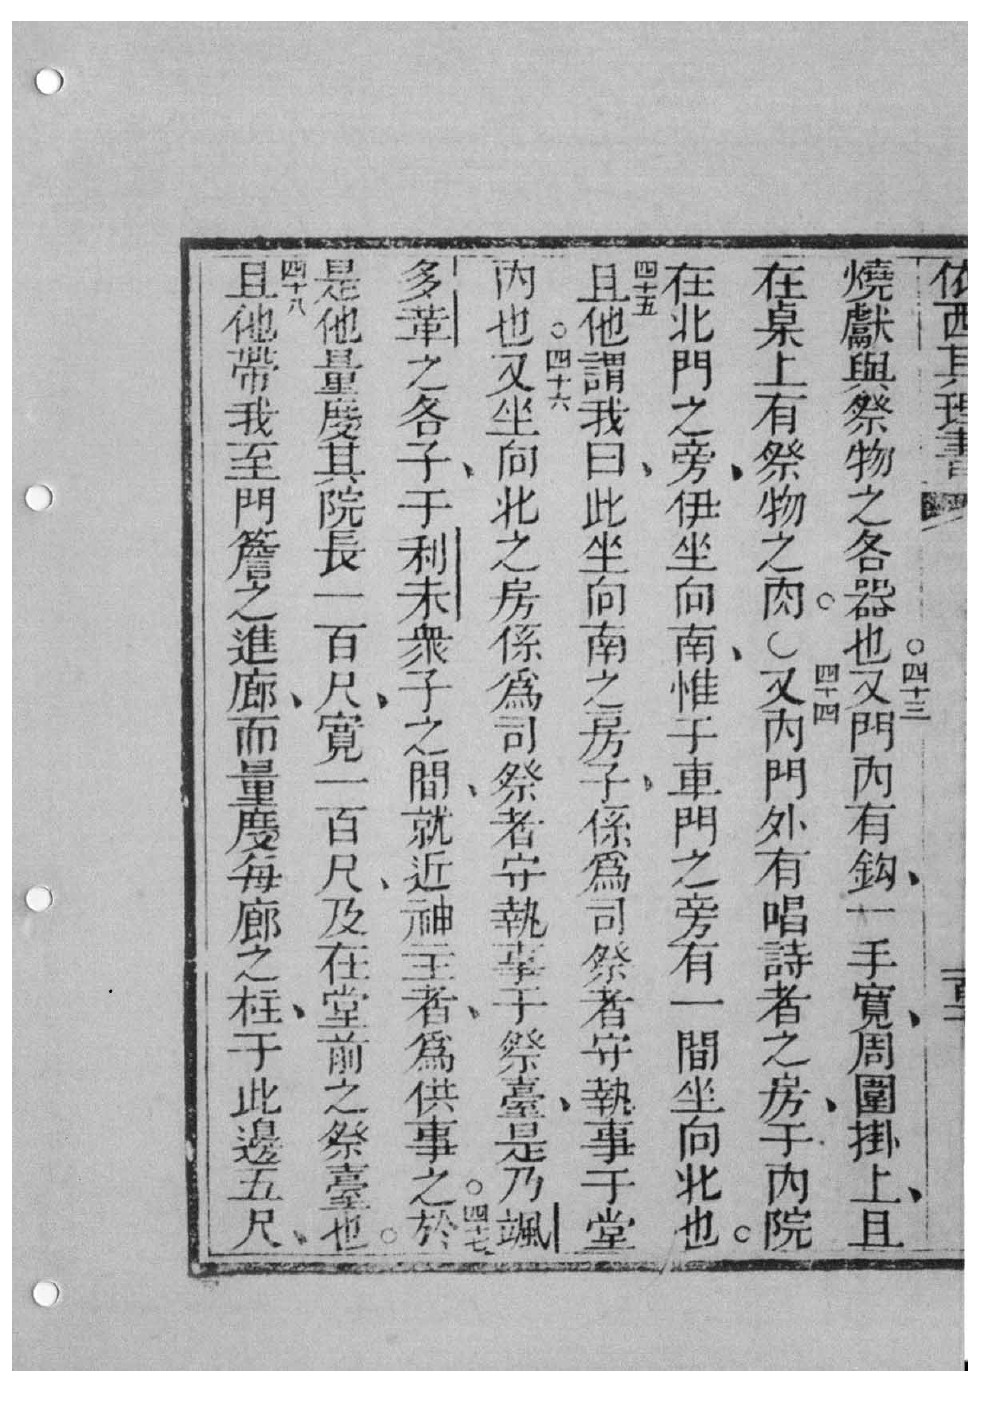 依西其理書
燒獻與祭物之各器也。四十三又門內有鈎、一手寬、周圍掛上、且
在桌上有祭物之肉。四十四又內門外有唱詩者之房、于內院
在北門之旁、伊坐向南、惟于車門之旁有一間坐向北也。
四十五且他謂我曰、此坐向南之房子、係爲司祭者守執事于堂
內也。四十六又坐向北之房係爲司祭者守執事于祭臺、是乃颯
多革之各子、于利未衆子之間、就近神主者、爲供事之。四十七於
是他量度其院長一百尺、寬一百尺、及在堂前之祭臺也。
四十八且他帶我至門簷之進廊、而量度每廊之柱、于此邊五尺、